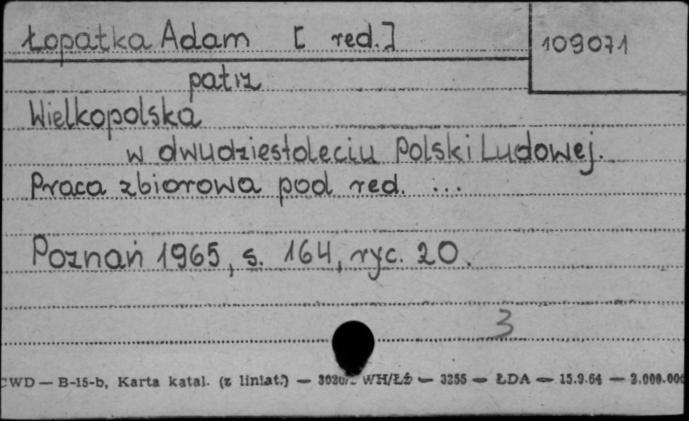 Łopatka Adam [ red.]
109071
patrz
Wielkopolska
w dwudziestoleciu Polski Ludowej.
Praca zbiorowa pod red. ...
Poznań 1965, s. 164, ryc. 20.
3
CWD — B-15-b, Karta katal. (z liniat.) — WH/Łż — 3255 — ŁDA — 15.9.64 — 3.000.000